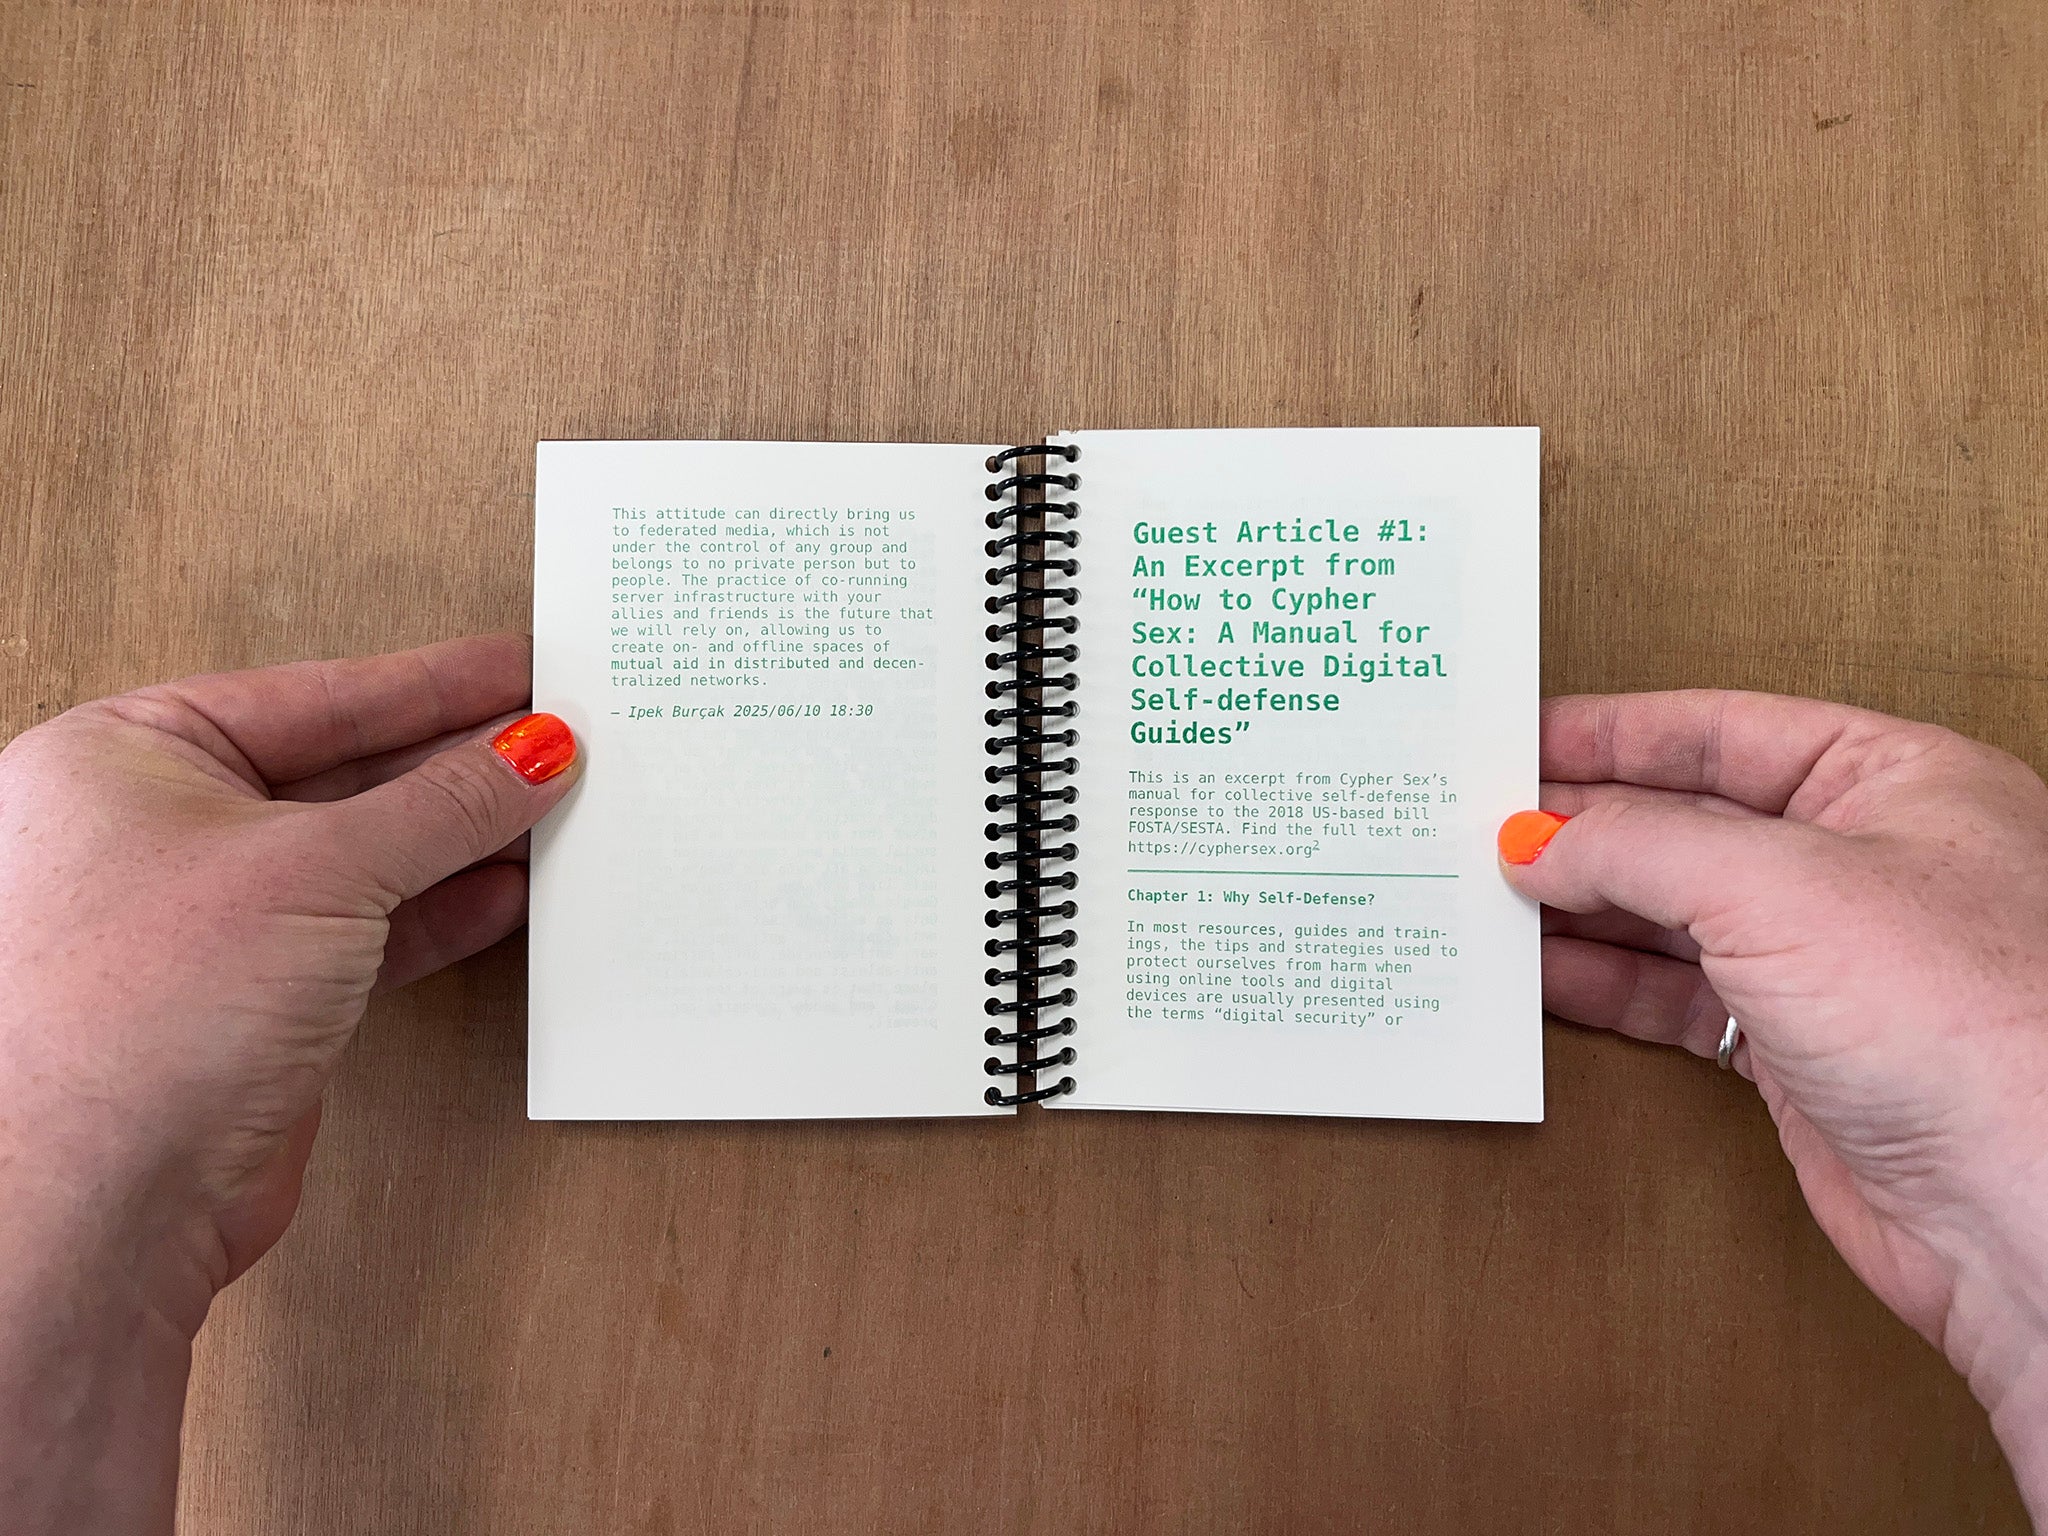 This attitude can directly bring us
to federated media, which is not
under the control of any group and
belongs to no private person but to
people. The practice of co-running
server infrastructure with your
allies and friends is the future that
we will rely on, allowing us to
create on- and offline spaces of
mutual aid in distributed and decen-
tralized networks.
— Ipek Burçak 2025/06/10 18:30
Guest Article #1:
An Excerpt from
“How to Cypher
Sex: A Manual for
Collective Digital
Self-defense
Guides”
This is an excerpt from Cypher Sex’s
manual for collective self-defense in
response to the 2018 US-based bill
FOSTA/SESTA. Find the full text on:
https://cyphersex.org²
Chapter 1: Why Self-Defense?
In most resources, guides and train-
ings, the tips and strategies used to
protect ourselves from harm when
using online tools and digital
devices are usually presented using
the terms “digital security” or